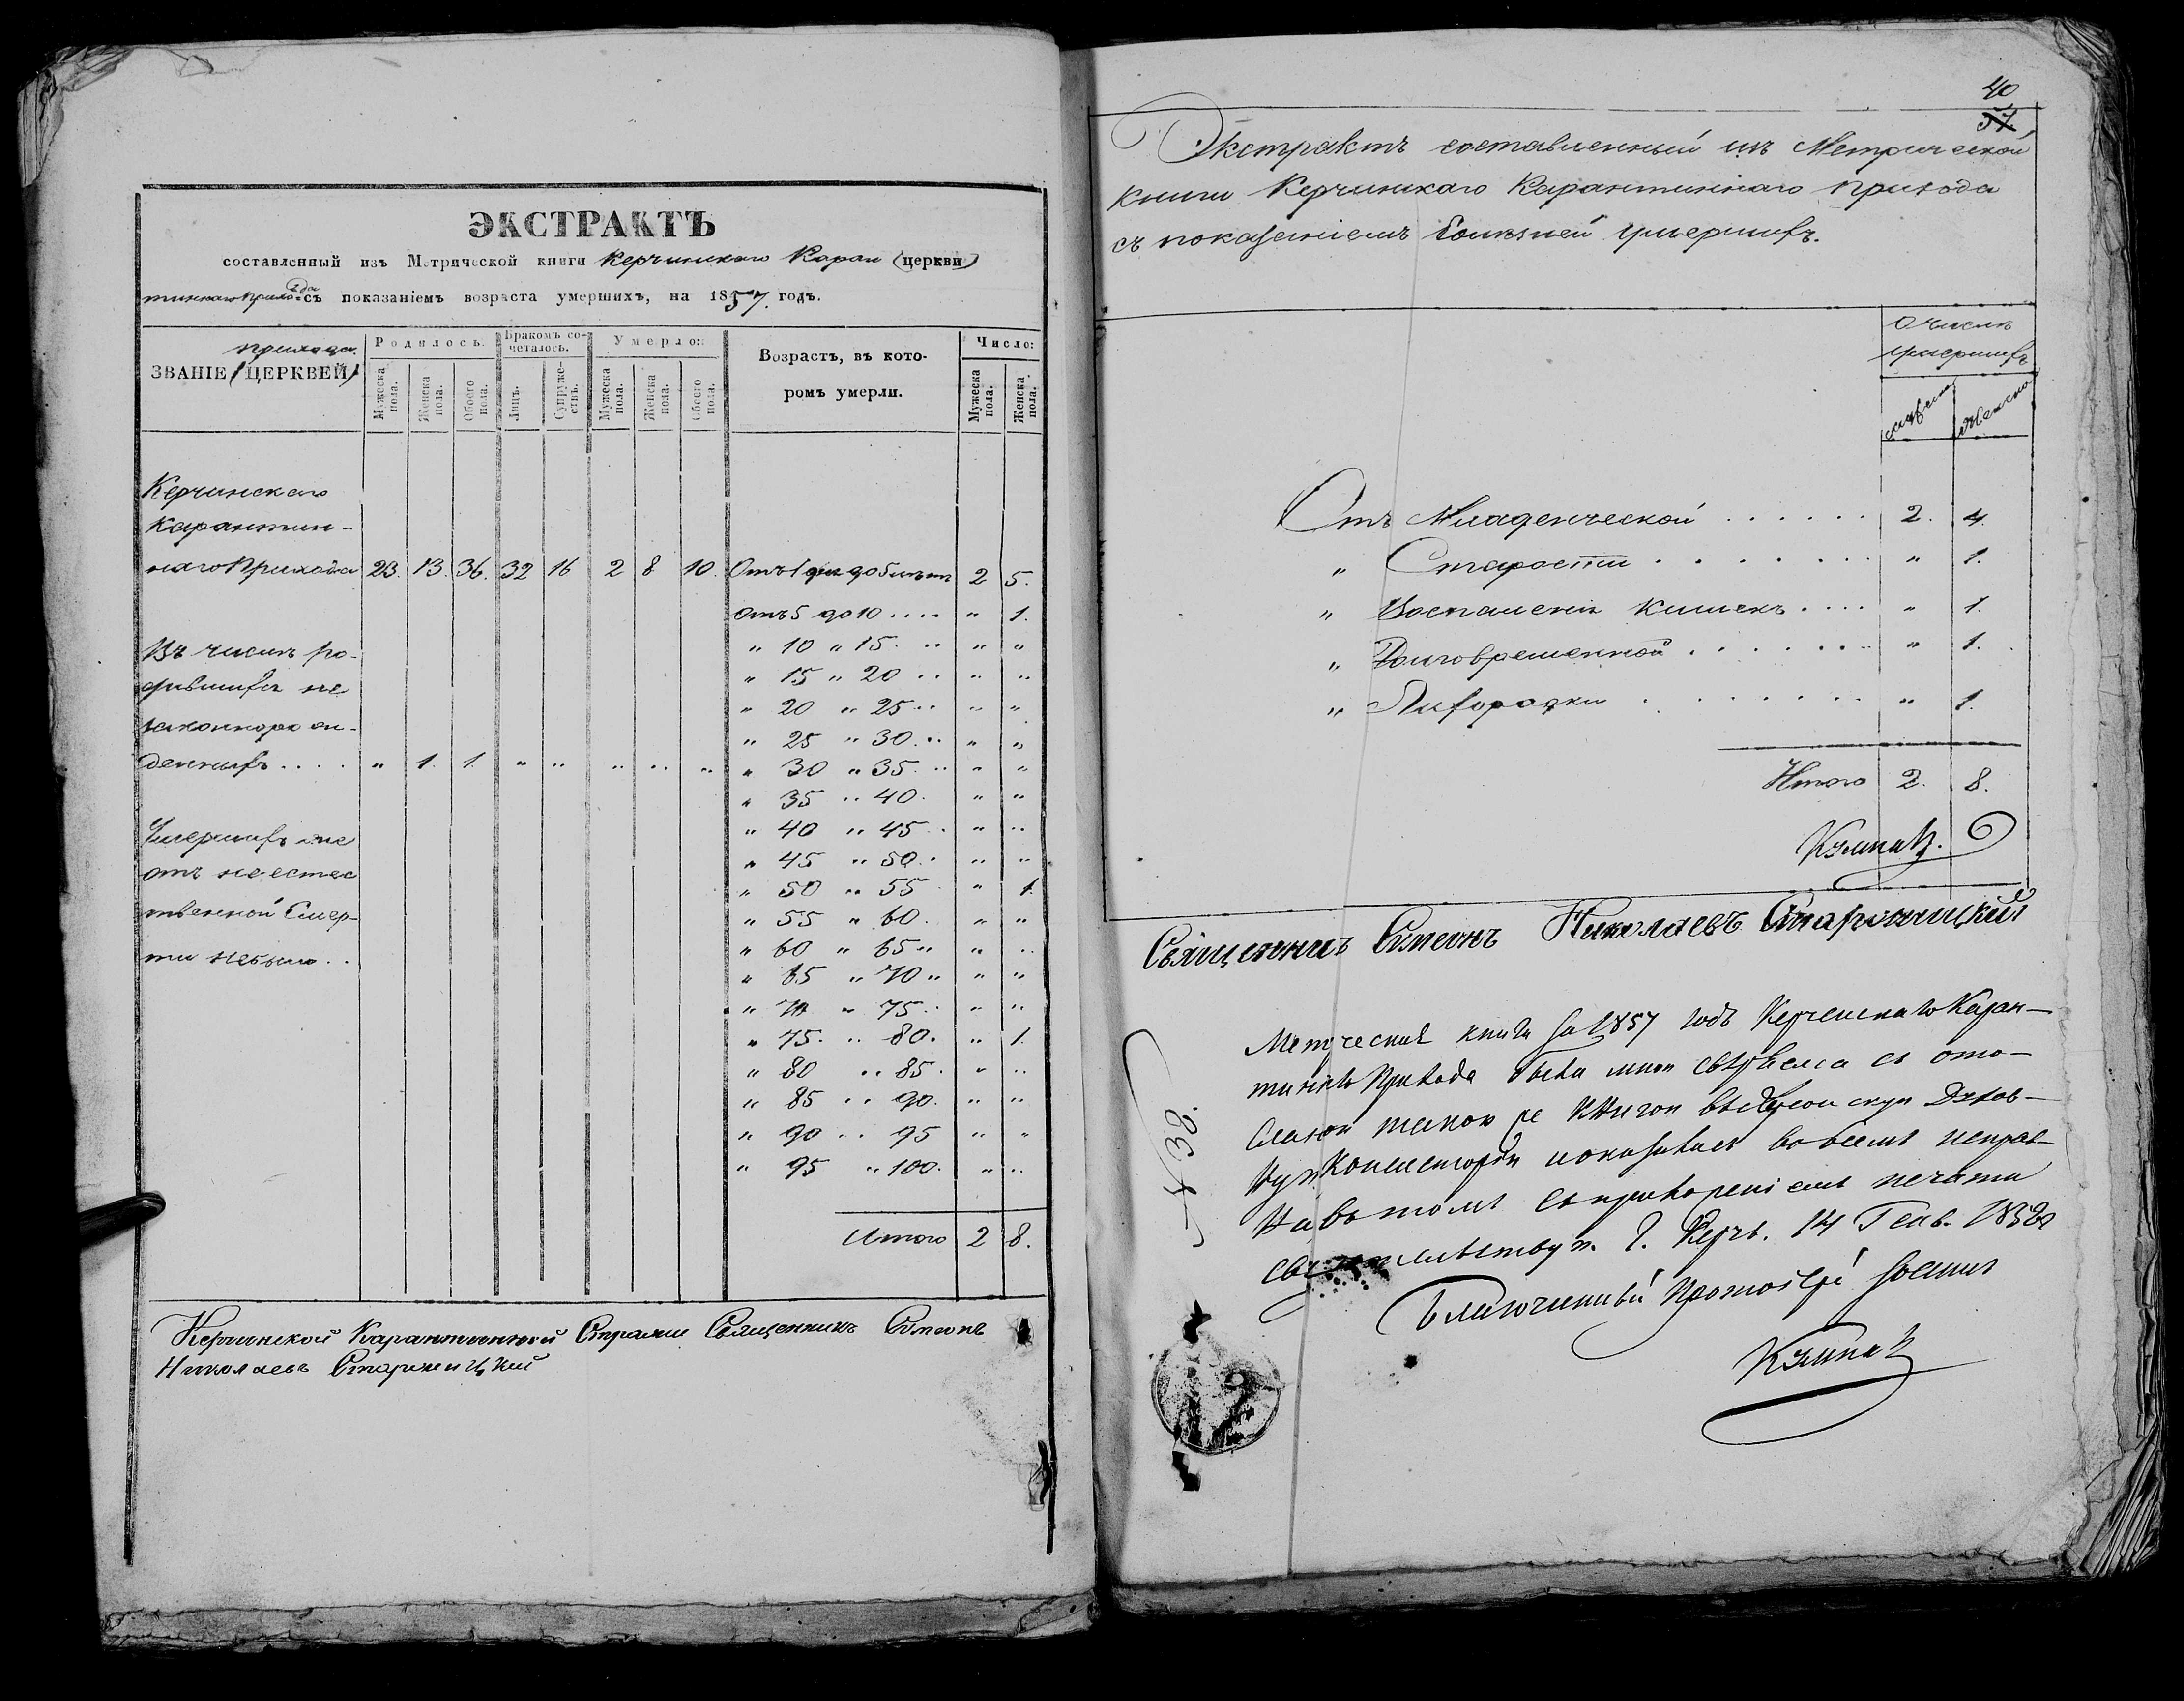 ЭКСТРАКТЪ
составленный изъ Метрической книги Керчинскаго Каран (церкви)
тиннаго прихода съ показаніемъ возраста умершихъ, на 1857 годъ.
прихода
ЗВАНІЕ (ЦЕРКВЕЙ)
Родилось:
Бракомъ сочеталось.
Умерло:
Возрастъ, въ кото-
ромъ умерли.
Число:
Мужеска пола.
Женска пола.
Обоего пола.
Лицъ.
Супружествъ.
Мужеска пола.
Женска пола.
Обоего пола.
Мужеска пола.
Женска пола.
Керчинскаго
Карантин-
наго Прихода 23. 13. 36. 32 16 2 8 10. Отъ 1 дня до 5 лѣтъ 2 5.
Отъ 5 до 10 .... " 1.
Въ числѣ ро- " 10 " 15. .. " "
дившихъ не " 15 " 20 .. " "
" 20 " 25 .. " "
законнорожден- " 25 " 30 .. " "
денныхъ .... " 1. 1. " " " " " " 30 " 35 .. " "
" 35 " 40. " "
Умершихъ же " 40 " 45 .. " "
отъ неестес " 45 " 50 .. " "
" 50 " 55 " 1.
твенной Смер- " 55 " 60. " "
ти небыло .. " 60 " 65 " " "
" 65 " 70 " " "
" 70 " 75 .. " "
" 75. " 80. " 1.
" 80 " 85. " "
" 85 " 90. " "
" 90 " 95 " "
" 95 " 100. " "
Итого 2 8.
Керчинской Карантинной Священникъ Симеонъ
Николаевъ Старжицкій
40
57
Экстрактъ составленный изъ Метрической
книги Керчинскаго Карантиннаго прихода
съ показаніемъ болѣзней умершихъ.
О числѣ
умершихъ
мужеска
Женска
Отъ Младенческой ...... 2. 4.
" Старости ....... " 1.
" Воспаленія кишекъ .... " 1.
" Долговременной ....... " 1.
" Лихорадки ....... " 1.
Итого 2. 8.
Священникъ Симеонъ Николаевъ Старжицкій
№ 38.
Метрическая книга за 1857 годъ Керченскаго Каран-
тиннаго Прихода была мною свѣряема съ ото-
сланою такою же книгою въ Духов-
ную Консисторію и оказалась во всемъ исправ-
на въ томъ съ приложеніемъ печати
свидѣтельствую. Г. Керчь. 14 Генв. 1858
Благочинный Протоіерей Іоаннъ